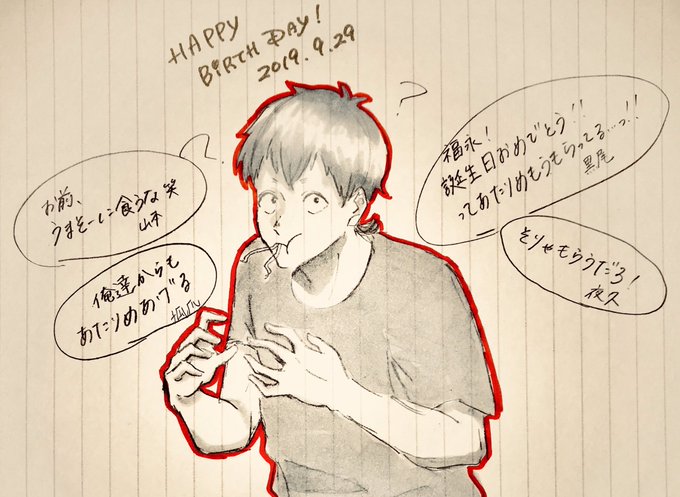 HAPPY
BIRTH DAY!
2019.9.29
?
福永!
誕生日おめでとう!!
ってあたりめもうもらってる…っ!!
黒尾
そりゃもらうだろ!
夜久
お前、
うまそーに食うな 笑
山本
俺達からも
あたりめあげる